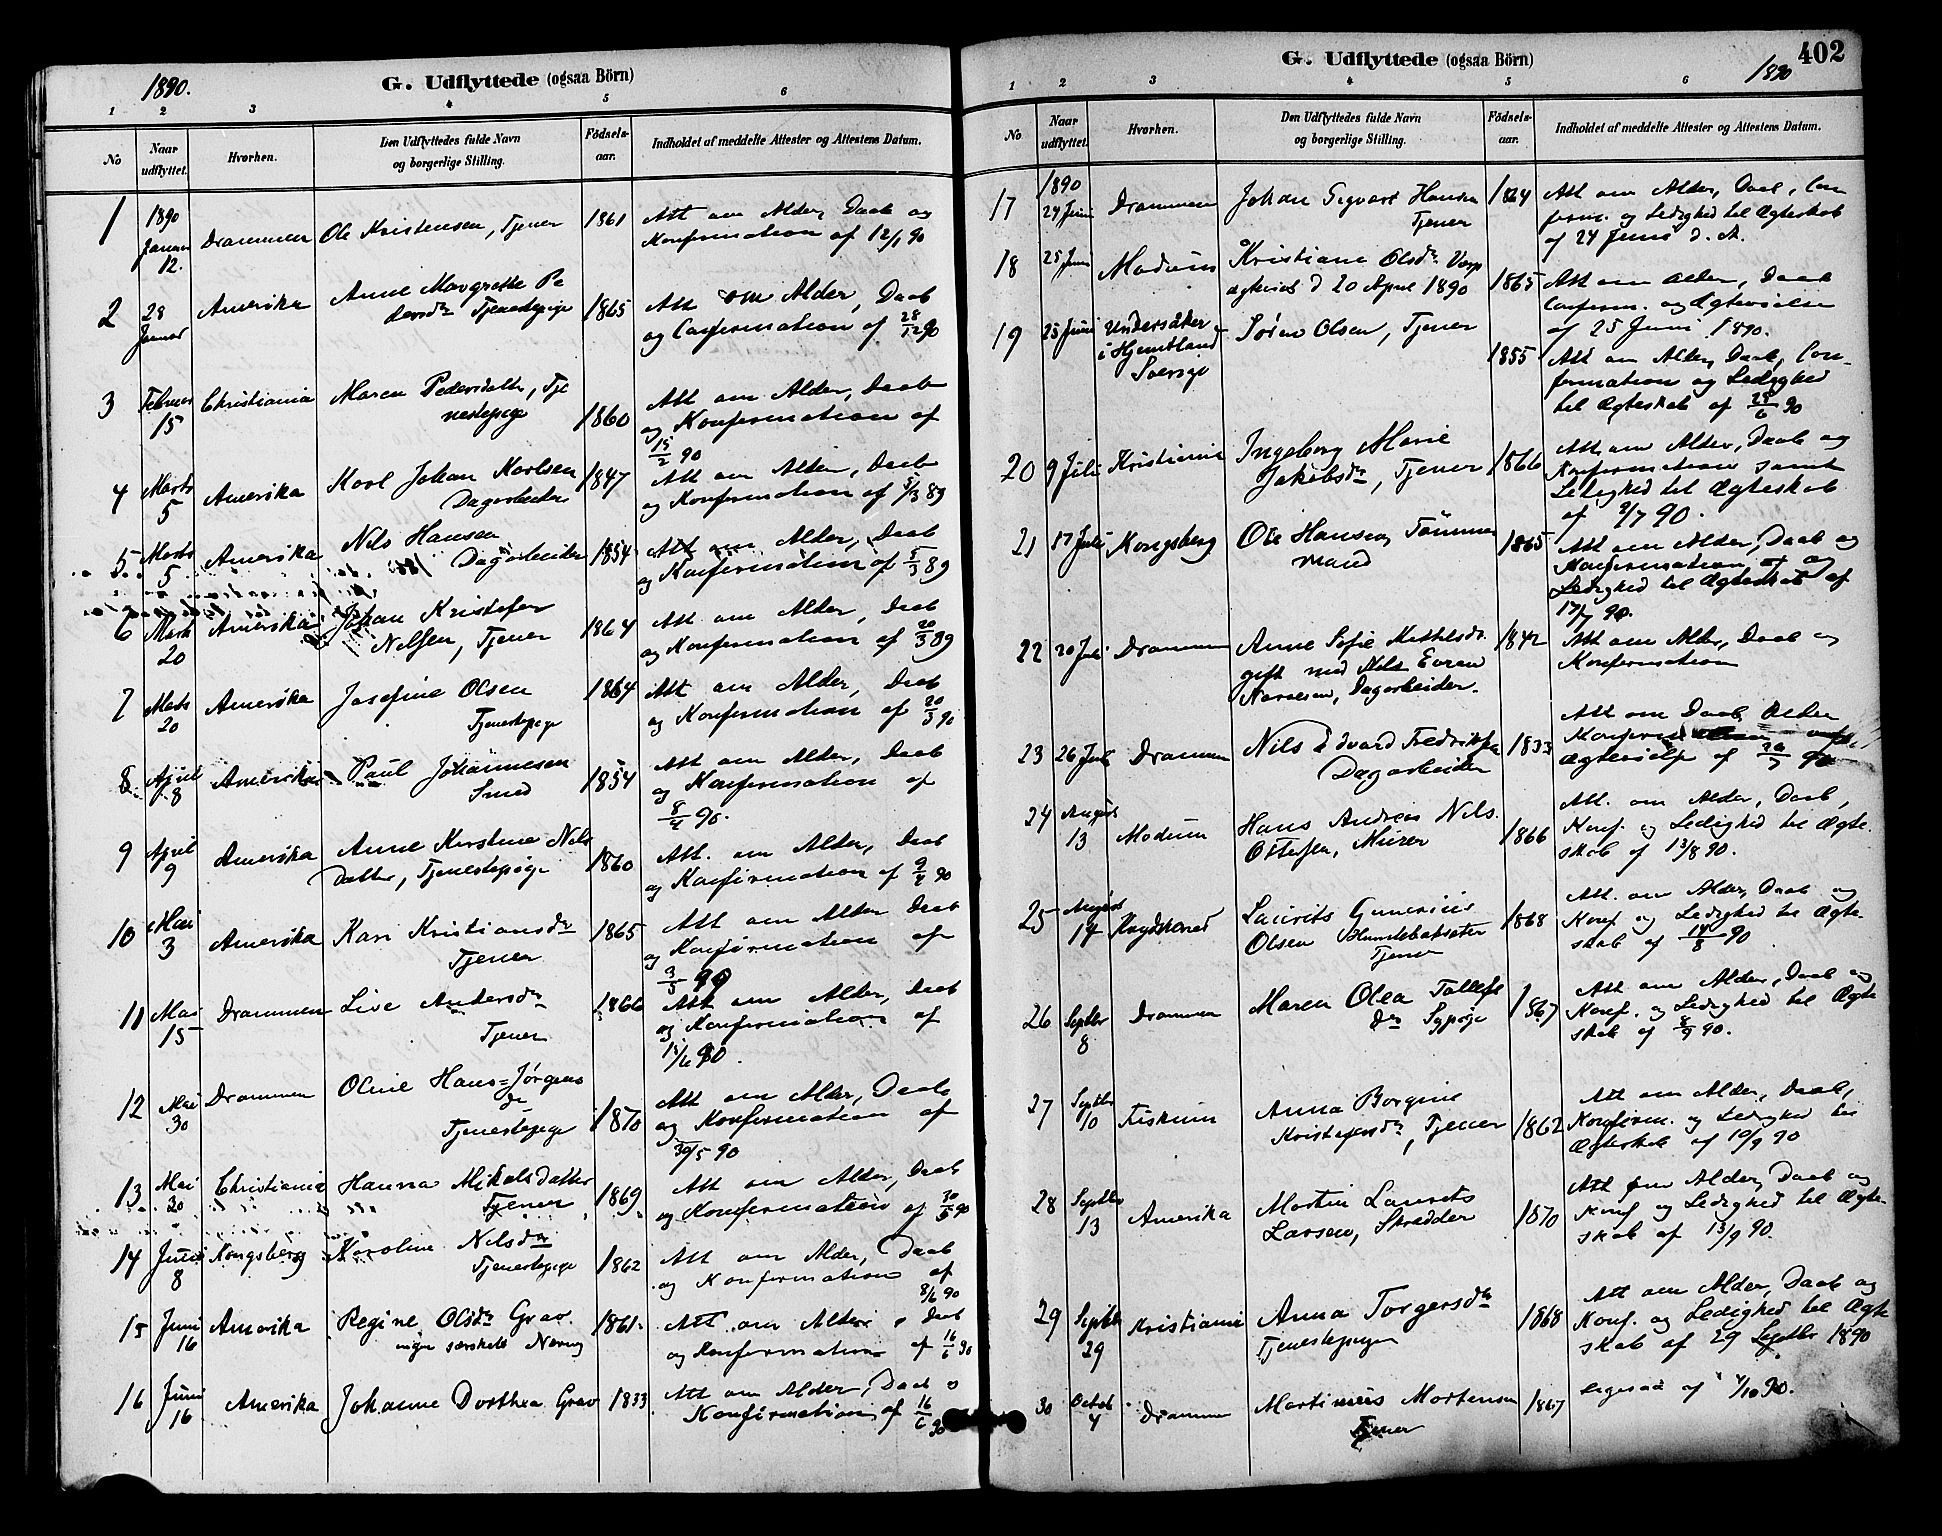 1890.
G. Udflyttede (ogsaa Börn)
1 2 3 4 5 6
No
Naar udflyttet.
Hvorhen.
Den Udflyttedes fulde Navn
og borgerlige Stilling.
Födsels-
aar.
Indholdet af meddelte Attester og Attestens Datum.
1 1890 Januar 12. Drammen Ole Kristensen, Tjener 1861 Att om Alder, Daab og
Konfirmation af 12/1 90
2 28 Januar Amerika Anne Margrethe Pe
dersdr Tjenestepige 1865 Att om Alder, Daab
og Confirmation af 28/12 90
3 Februar 15 Christiania Maren Pedersdatter, Tje
nestepige 1860 Att om Alder, Daab
og Konfirmation af
15/2 90
4 Marts 5 Amerika Karl Johan Karlsen
Dagarbeider 1847 Att om Alder, Daab
og Konfirmation af 5/3 89
5 Marts 5 Amerika Nils Hansen
Dagarbeider 1854 Att om Alder, Daab
og Konfirmation af 5/3 89
6 Marts 20 Amerika Johan Kristofer
Nilsen, Tjener 1864 Att om Alder, Daab
og Konfirmation af 20/3 89
7 Marts 20 Amerika Josefine Olsen
Tjenestepige 1864 Att om Alder, Daab
og Konfirmation af 20/3 90
8 April 8 Amerika Paul Johannesen
Smed 1854 Att om Alder, Daab
og Konfirmation af
8/4 90.
9 April 9 Amerika Anne Kirstine Nils
Datter, Tjenestepige 1860 Att. om Alder, Daab
og Konfirmation af 9/4 90
10 Mai 3 Amerika Kari Kristiansdr
Tjener 1865 Att om Alder Daab
og Konfirmation af
3/5 90
11 Mai 15 Drammen Live Andersdr
Tjener 1866 Att om Alder, Daab
og Konfirmation af
15/6 90.
12 Mai 30 Drammen Oline Hans=Jörgens
dr
Tjenestepige 1870 Att om Alder, Daab
og Konfirmation af
30/5 90
13 Mai 30 Christiania Hanna Mikelsdatter
Tjener 1869 Att om Alder, Daab
og Konfirmation af 30/5 90
14 Juni 8 Kongsberg Karoline Nilsdr
Tjenestepige 1862 Att om Alder, Daab
og Konfirmation af
8/6 90
15 Juni 16 Amerika Regine Olsdr Grav
ingen særskilt Næring 1861 Att om Alder, Daab
og Konfirmation af 16/6 90
16 Juni 16 Amerika Johanne Dorthea Grav 1833 Att om Alder, Daab o
Konfirmation af 16/6 90
402
G. Udflyttede (ogsaa Börn)
1890
1 2 3 4 5 6
No
Naar udflyttet.
Hvorhen.
Den Udflyttedes fulde Navn
og borgerlige Stilling.
Födsels-
aar.
Indholdet af meddelte Attester og Attestens Datum.
17 1890 24 Juni Drammen Johan Sigvart Hansen
Tjener 1864 Att om Alder, Daab, Con
firm. og Ledighed til Ægteskab
af 24 Juni d. A.
18 25 Juni Modum Kristiane Olsdr
ægteviet d 20 April 1890 1865 Att om Alder, Daab
Confirm. og Ægtevielse
af 25 Juni 1890.
19 25 Juni Undersåker
i Hjemtland
Sverige Sören Olsen, Tjener 1855 Att om Alder, Daab, Con-
firmation og Ledighed
til Ægteskab af 25/6 90
20 9 Juli Kristiania Ingeborg Marie
Jakobsdr, Tjener 1866 Att om Alder, Daab og
Konfirmation samt
Ledighed til Ægteskab
af 9/7 90.
21 17 Juli Kongsberg Ole Hansen, Tömmer
mand 1865 Att om Alder, Daab og
Konfirmation og
Ledighed til Ægteskab af
17/7 90.
22 20 Juli Drammen Anne Sofie Mathisdr.
gift med Nils
Dagarbeider. 1842 Att om Alder, Daab og
Konfirmation
23 26 Juli Drammen Nils Edvard Fredriksen
Dagarbeider 1833 Att om Daab, Alder
Konfirm
Ægtevielse af 26/7 90
24 August 13 Modum Hans Andreas Nils.
Ottersen, Murer 1866 Att. om Alder, Daab,
Konf. og Ledighed til Ægte-
skab af 13/8 90.
25 August 14 Krydsherred Laurits Gunerius
Olsen
Tjener 1868 Att. om Alder, Daab og
Konf og Ledighed til Ægte-
skab af 14/8 90
26 Septbr 8 Drammen Maren Olea Tollefs
dr Sypige 1867 Att om Alder, Daab og
Konf. og Ledighed til Ægte
skab af 8/9 90.
27 Septbr 10 Fiskum Anna Borgine
Kristofersdr, Tjener 1862 Att om Alder, Daab,
Konfirm. og Ledighed til
Ægteskab af 10/9 90
28 Septbr 13 Amerika Martin Laurits
Larsen, Skredder 1870 Att om Alder, Daab og
Konf og Ledighed til Ægte-
skab af 13/9 90.
29 Septbr 29 Kristiania Anna Torgersdr
Tjenestepige 1868 Att om Alder, Daab og
Konf. og Ledighed til Ægte
skab af 29 Septbr 1890
30 Octob 4 Drammen Martinius Mortensen
Tjener 1867 ligesaa af 4/10 90.